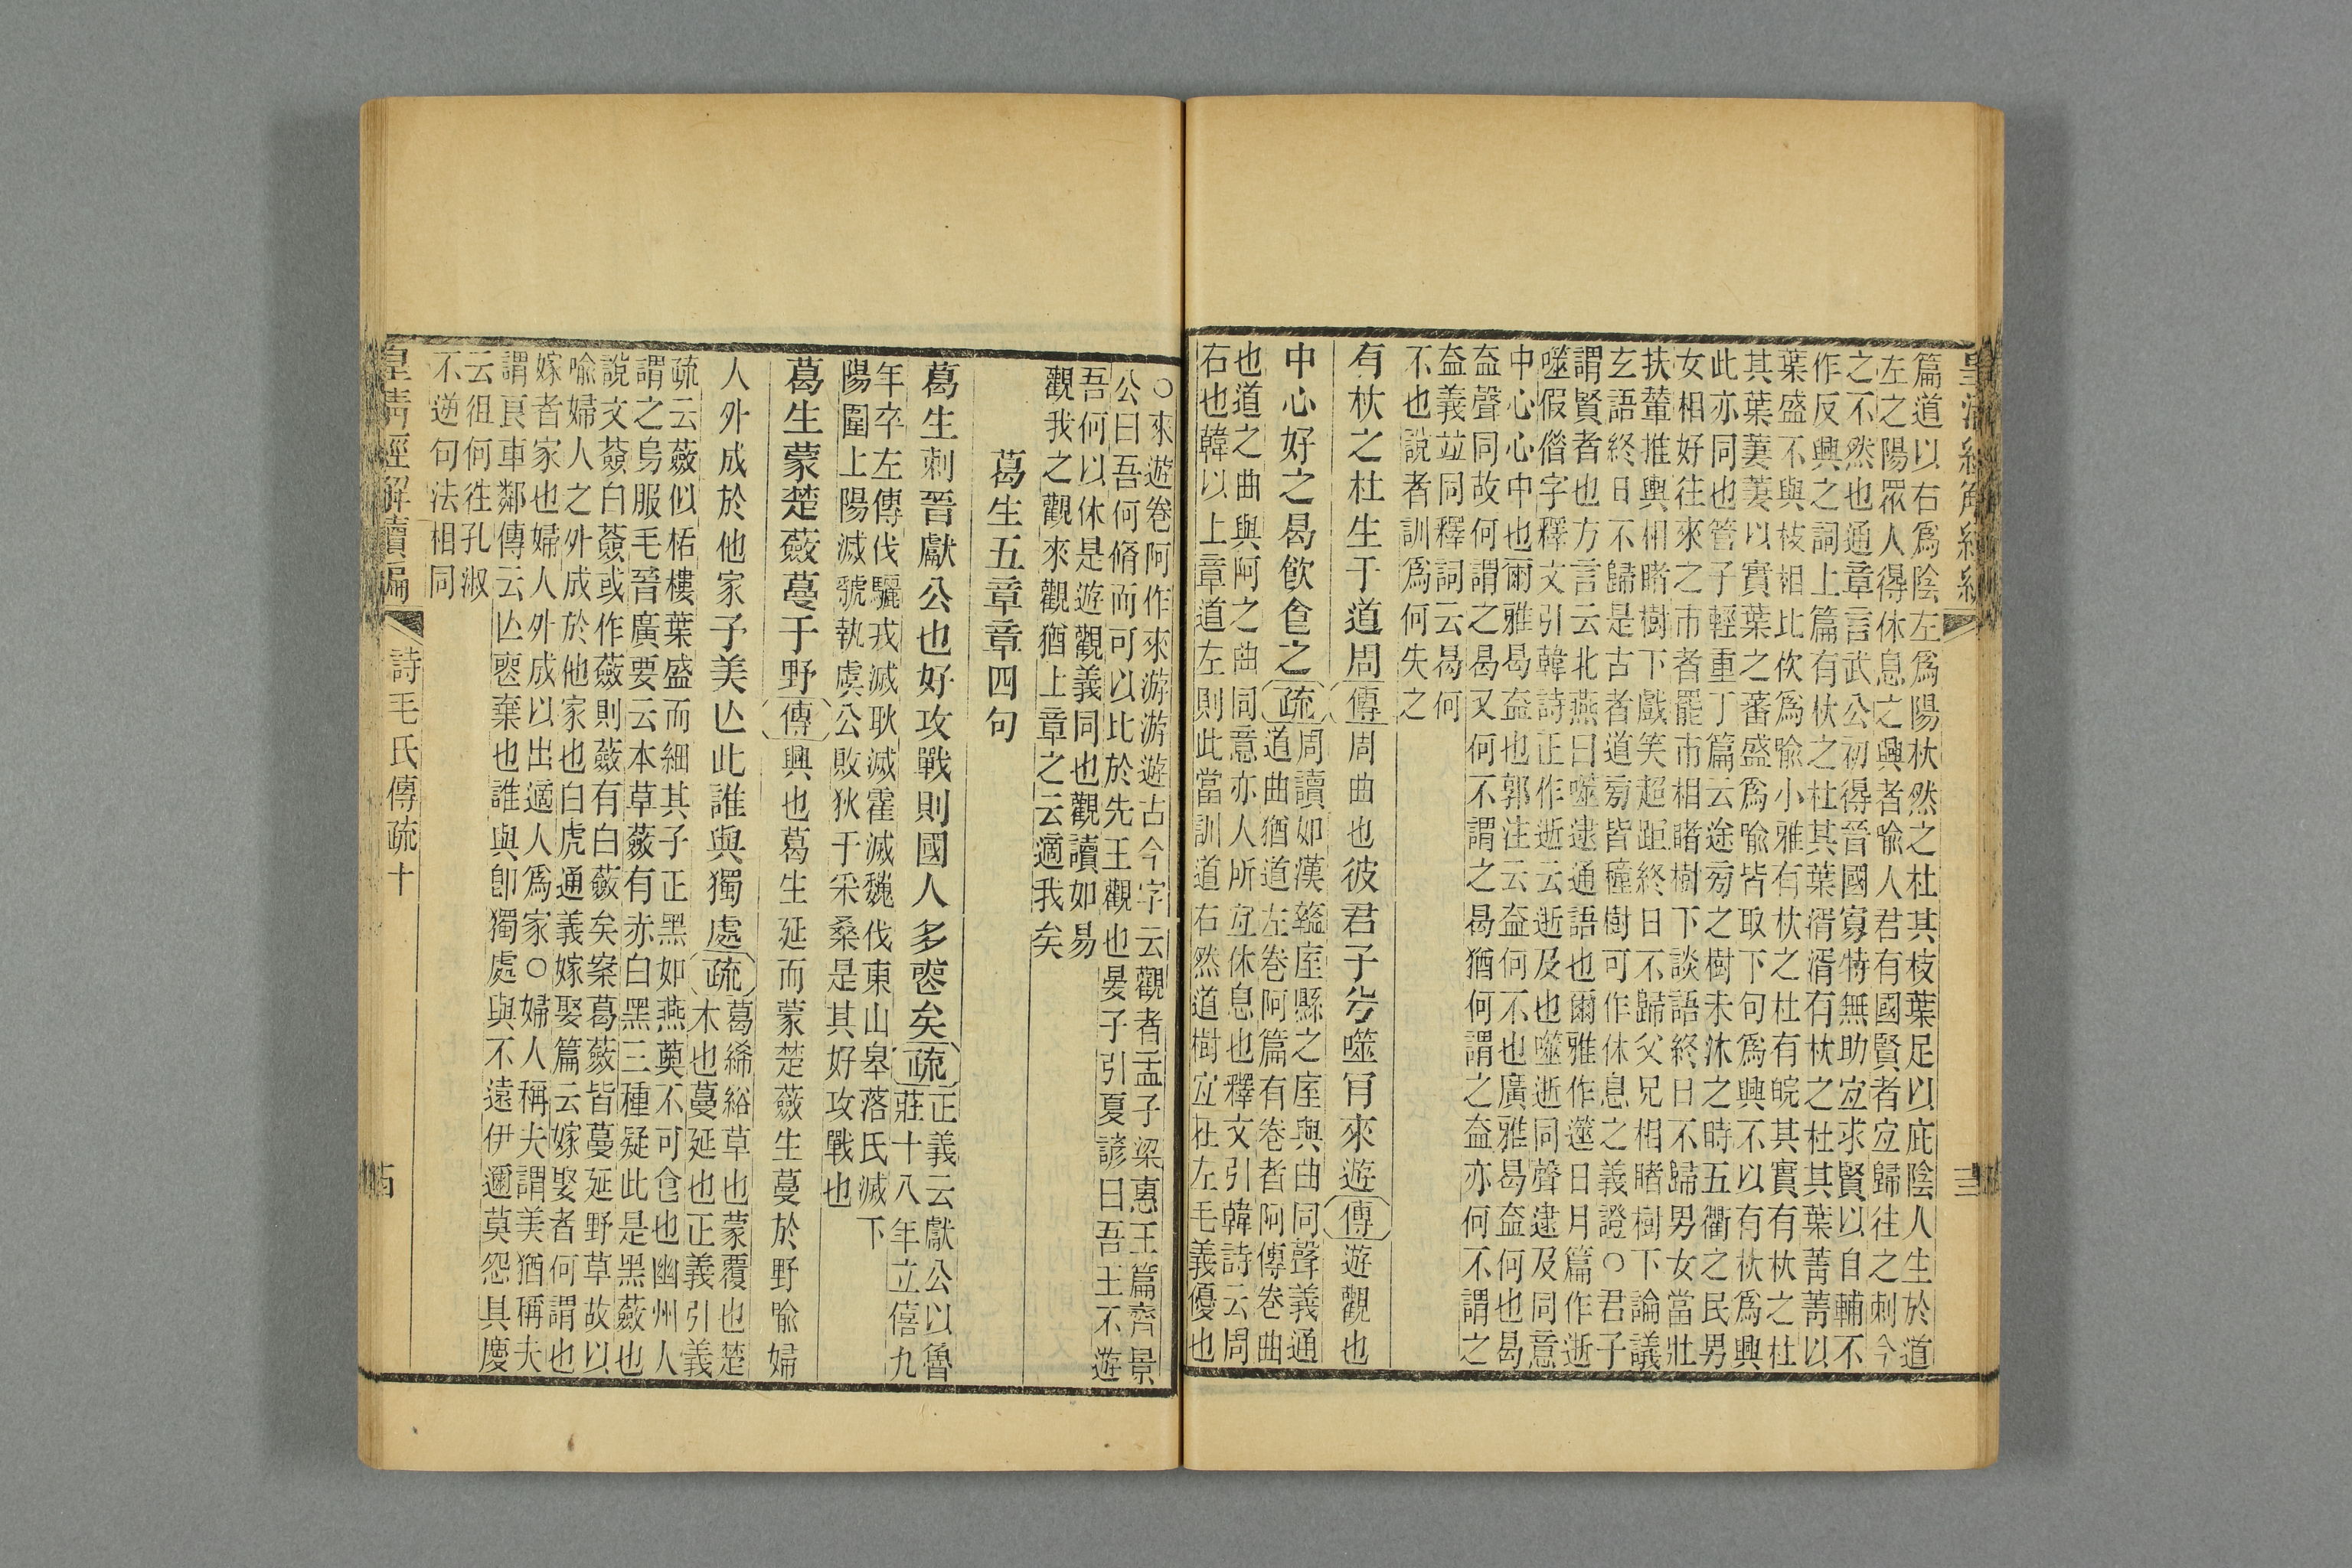 皇清經解續編
十三
篇道以右爲陰左爲陽杕然之杜其枝葉足以庇陰人生於道
左之陽眾人得休息之興者喻人君有國賢者宐歸往之刺今
之不然也通章言武公初得晉國寡特無助宐求賢以自輔不
作反興之詞上篇有杕之杜其葉湑湑有杕之杜其葉菁菁以
葉盛不與枝相比佽爲喻小雅有杕之杜有皖其實有杕之杜
其葉萋萋以實葉之蕃盛爲喻皆取下句爲興不以有杕爲興
此亦同也管子輕重丁篇云途㫄之樹未沐之時五衢之民男
女相好往來之市者罷市相睹樹下談語終日不歸男女當壯
扶輦推輿相睹樹下戲笑超距終日不歸父兄相睹樹下論議
玄語終日不歸是古者道㫄皆穜樹可作休息之義證○君子
謂賢者也方言云北燕曰噬逮通語也爾雅作遾日月篇作逝
噬假偕字釋文引韓詩正作逝云逝及也噬逝同聲逮及同意
中心心中也爾雅曷盍也郭注云盍何不也廣雅曷盍何也曷
盍聲同故何謂之曷又何不謂之曷猶何謂之盍亦何不謂之
盍義竝同釋詞云曷何
不也說者訓爲何失之
有杕之杜生于道周傳周曲也彼君子兮噬肎來遊傳遊觀也
中心好之曷飮食之疏
周讀如漢盩厔縣之厔與曲同聲義通
道曲猶道左卷阿篇有卷者阿傳卷曲
也道之曲與阿之曲同意亦人所宐休息也釋文引韓詩云周
右也韓以上章道左則此當訓道右然道樹宐在左毛義優也
○來遊卷阿作來游游遊古今字云觀者孟子梁惠王篇齊景
公曰吾何脩而可以比於先王觀也晏子引夏諺曰吾王不遊
吾何以休是遊觀義同也觀讀如易
觀我之觀來觀猶上章之云適我矣
葛生五章章四句
葛生刺晉獻公也好攻戰則國人多喪矣疏
正義云獻公以魯
莊十八年立僖九
年卒左傳伐驪戎滅耿滅霍滅魏伐東山皋落氏滅下
陽圍上陽滅虢執虞公敗狄于采桑是其好攻戰也
葛生蒙楚蘞蔓于野傳興也葛生延而蒙楚蘞生蔓於野喻婦
人外成於他家予美亾此誰與獨處疏
葛絺綌草也蒙覆也楚
木也蔓延也正義引義
疏云蘞似栝樓葉盛而細其子正黑如燕薁不可食也幽州人
謂之烏服毛晉廣要云本草蘞有赤白黑三種疑此是黑蘞也
說文薟白薟或作蘞則蘞有白蘞矣案葛蘞皆蔓延野草故以
喻婦人之外成於他家也白虎通義嫁娶篇云嫁娶者何謂也
嫁者家也婦人外成以出適人爲家○婦人稱夫謂美猶稱夫
謂良車鄰傳云亾喪棄也誰與卽獨處與不遠伊邇莫怨具慶
云徂何徃孔淑
不逆句法相同
皇淸經解續編
詩毛氏傳疏十
十四